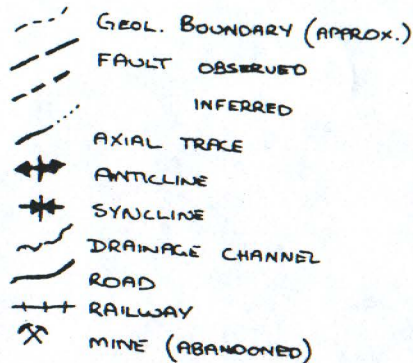 GEOL. BOUNDARY (APPROX.)
FAULT OBSERVED
INFERRED
AXIAL TRACE
ANTICLINE
SYNCLINE
DRAINAGE CHANNEL
ROAD
RAILWAY
MINE (ABANDONED)